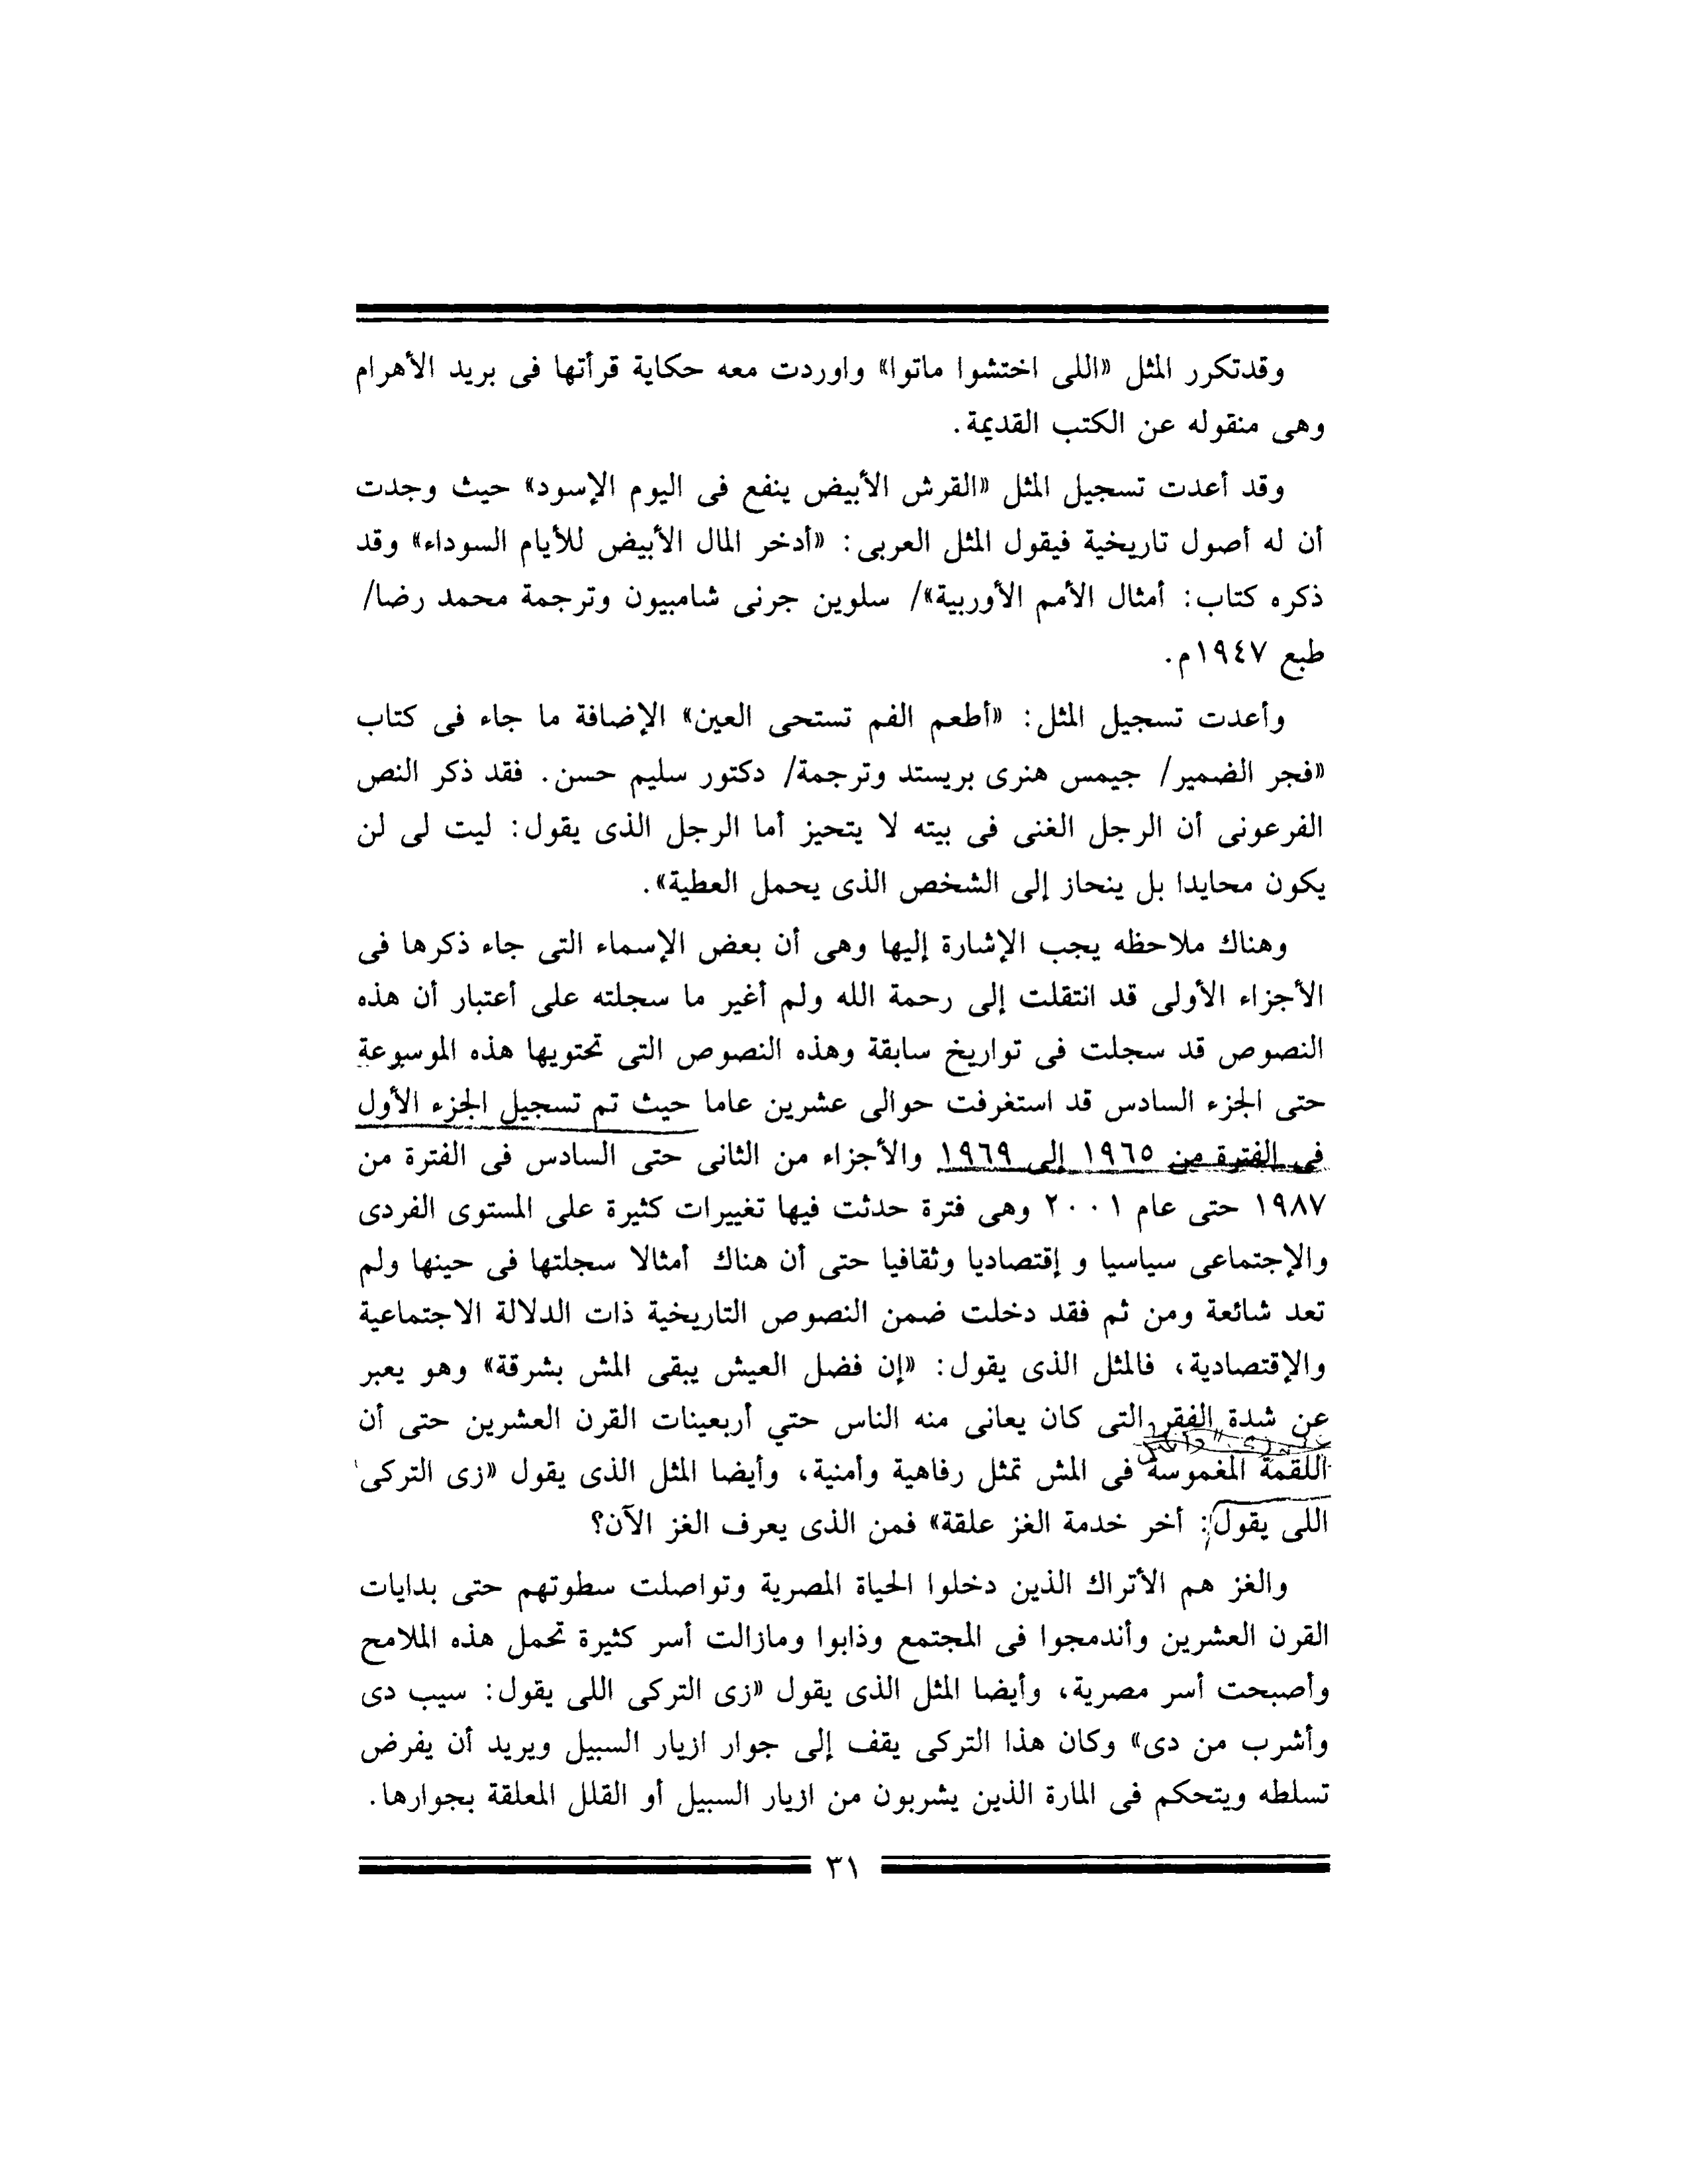 وقدتكرر المثل «اللى اختشوا ماتوا» واوردت معه حكاية قرأتها فى بريد الأهرام
وهى منقوله عن الكتب القديمة.
وقد أعدت تسجيل المثل «القرش الأبيض ينفع فى اليوم الإسود» حيث وجدت
أن له أصول تاريخية فيقول المثل العربى: «أدخر المال الأبيض للأيام السوداء» وقد
ذكره كتاب: أمثال الأمم الأوربية»/ سلوين جرنى شامبيون وترجمة محمد رضا/
طبع ١٩٤٧م.
وأعدت تسجيل المثل: «أطعم الفم تستحى العين» الإضافة ما جاء فى كتاب
«فجر الضمير/ جيمس هنرى بريستد وترجمة/ دكتور سليم حسن. فقد ذكر النص
الفرعونى أن الرجل الغنى فى بيته لا يتحيز أما الرجل الذى يقول: ليت لى لن
يكون محايدا بل ينحاز إلى الشخص الذى يحمل العطية».
وهناك ملاحظه يجب الإشارة إليها وهى أن بعض الإسماء التى جاء ذكرها فى
الأجزاء الأولى قد انتقلت إلى رحمة الله ولم أغير ما سجلته على أعتبار أن هذه
النصوص قد سجلت فى تواريخ سابقة وهذه النصوص التى تحتويها هذه الموسوعة
حتى الجزء السادس قد استغرفت حوالى عشرين عاما حيث تم تسجيل الجزء الأول
فى الفترة من ١٩٦٥ إلى ١٩٦٩ والأجزاء من الثانى حتى السادس فى الفترة من
١٩٨٧ حتى عام ٢٠٠١ وهى فترة حدثت فيها تغييرات كثيرة على المستوى الفردى
والإجتماعى سياسيا و إقتصاديا وثقافيا حتى أن هناك أمثالا سجلتها فى حينها ولم
تعد شائعة ومن ثم فقد دخلت ضمن النصوص التاريخية ذات الدلالة الاجتماعية
والإقتصادية، فالمثل الذى يقول: «إن فضل العيش يبقى المش بشرقة» وهو يعبر
عن شدة الفقر التى كان يعانى منه الناس حتي أربعينات القرن العشرين حتى أن
اللقمة المغموسة فى المش تمثل رفاهية وأمنية، وأيضا المثل الذى يقول «زى التركى
اللى يقول: أخر خدمة الغز علقة» فمن الذى يعرف الغز الآن؟
والغز هم الأتراك الذين دخلوا الحياة المصرية وتواصلت سطوتهم حتى بدايات
القرن العشرين وأندمجوا فى المجتمع وذابوا ومازالت أسر كثيرة تحمل هذه الملامح
وأصبحت أسر مصرية، وأيضا المثل الذى يقول «زى التركى اللى يقول: سيب دى
وأشرب من دى» وكان هذا التركى يقف إلى جوار ازيار السبيل ويريد أن يفرض
تسلطه ويتحكم فى المارة الذين يشربون من ازيار السبيل أو القلل المعلقة بجوارها.
٣١